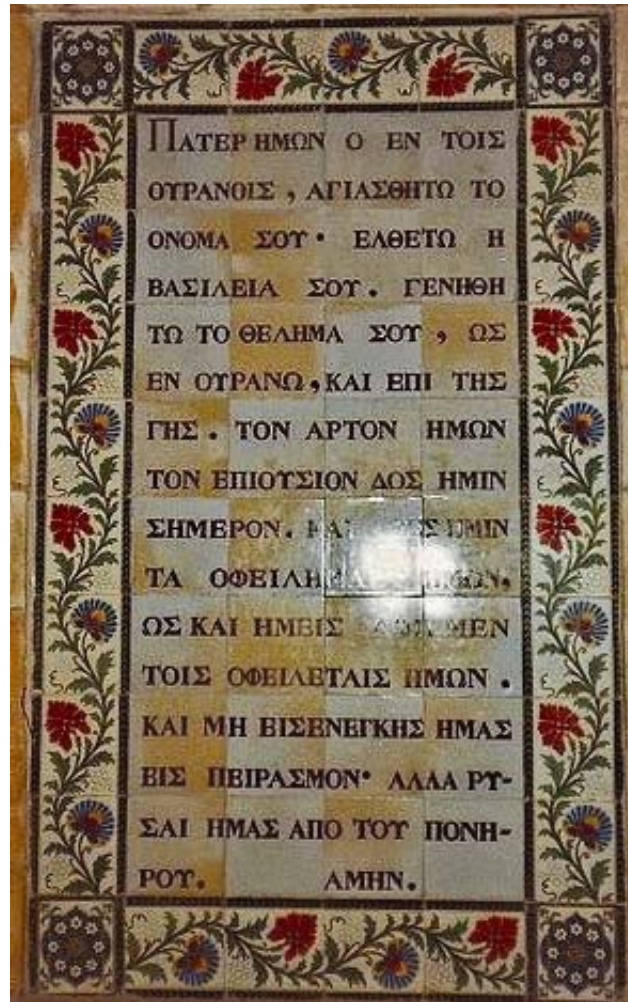 ΠΑΤΕΡ ΗΜΩΝ Ο ΕΝ ΤΟΙΣ
ΟΥΡΑΝΟΙΣ , ΑΓΙΑΣΘΗΤΩ ΤΟ
ΟΝΟΜΑ ΣΟΥ· ΕΛΘΕΤΩ Η
ΒΑΣΙΛΕΙΑ ΣΟΥ. ΓΕΝΗΘΗ
ΤΩ ΤΟ ΘΕΛΗΜΑ ΣΟΥ , ΩΣ
ΕΝ ΟΥΡΑΝΩ, ΚΑΙ ΕΠΙ ΤΗΣ
ΓΗΣ . ΤΟΝ ΑΡΤΟΝ ΗΜΩΝ
ΤΟΝ ΕΠΙΟΥΣΙΟΝ ΔΟΣ ΗΜΙΝ
ΣΗΜΕΡΟΝ. ΚΑΙ ΗΜΙΝ
ΤΑ ΗΜΩΝ.
ΩΣ ΚΑΙ ΗΜΕΙΣ
ΤΟΙΣ ΟΦΕΙΛΕΤΑΙΣ ΗΜΩΝ .
ΚΑΙ ΜΗ ΕΙΣΕΝΕΓΚΗΣ ΗΜΑΣ
ΕΙΣ ΠΕΙΡΑΣΜΟΝ· ΑΛΛΑ ΡΥ-
ΣΑΙ ΗΜΑΣ ΑΠΟ ΤΟΥ ΠΟΝΗ-
ΡΟΥ. ΑΜΗΝ.